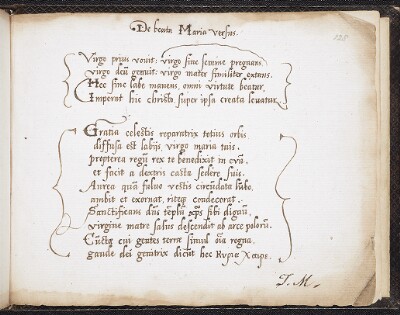 De beata Maria versus.
128
Virgo prius vouit: virgo sine semine pregnans.
virgo deū genuit: virgo mater similiter extans.
Hec sine labe manens, omni virtute beatur,
Imperat hic christo super ipsa creata leuatur.
Gratia celestis reparatrix totius orbis
diffusa est labijs, virgo maria tuis.
propterea regū rex te benedixit in euū,
et facit a dextris casta sedere suis.
Aurea quā fuluo vestis circūdata
ambit et exornat, riteqꝫ condecorat.
Sanctificans dūs tēplū xp̄s sibi dignū,
virgine matre satus descendit ab arce polorū.
Cūctaqꝫ cui gentes terræ simul oīa regna,
gaude dei genitrix dicūt hec Κυριε Χαιρε.
T. M.